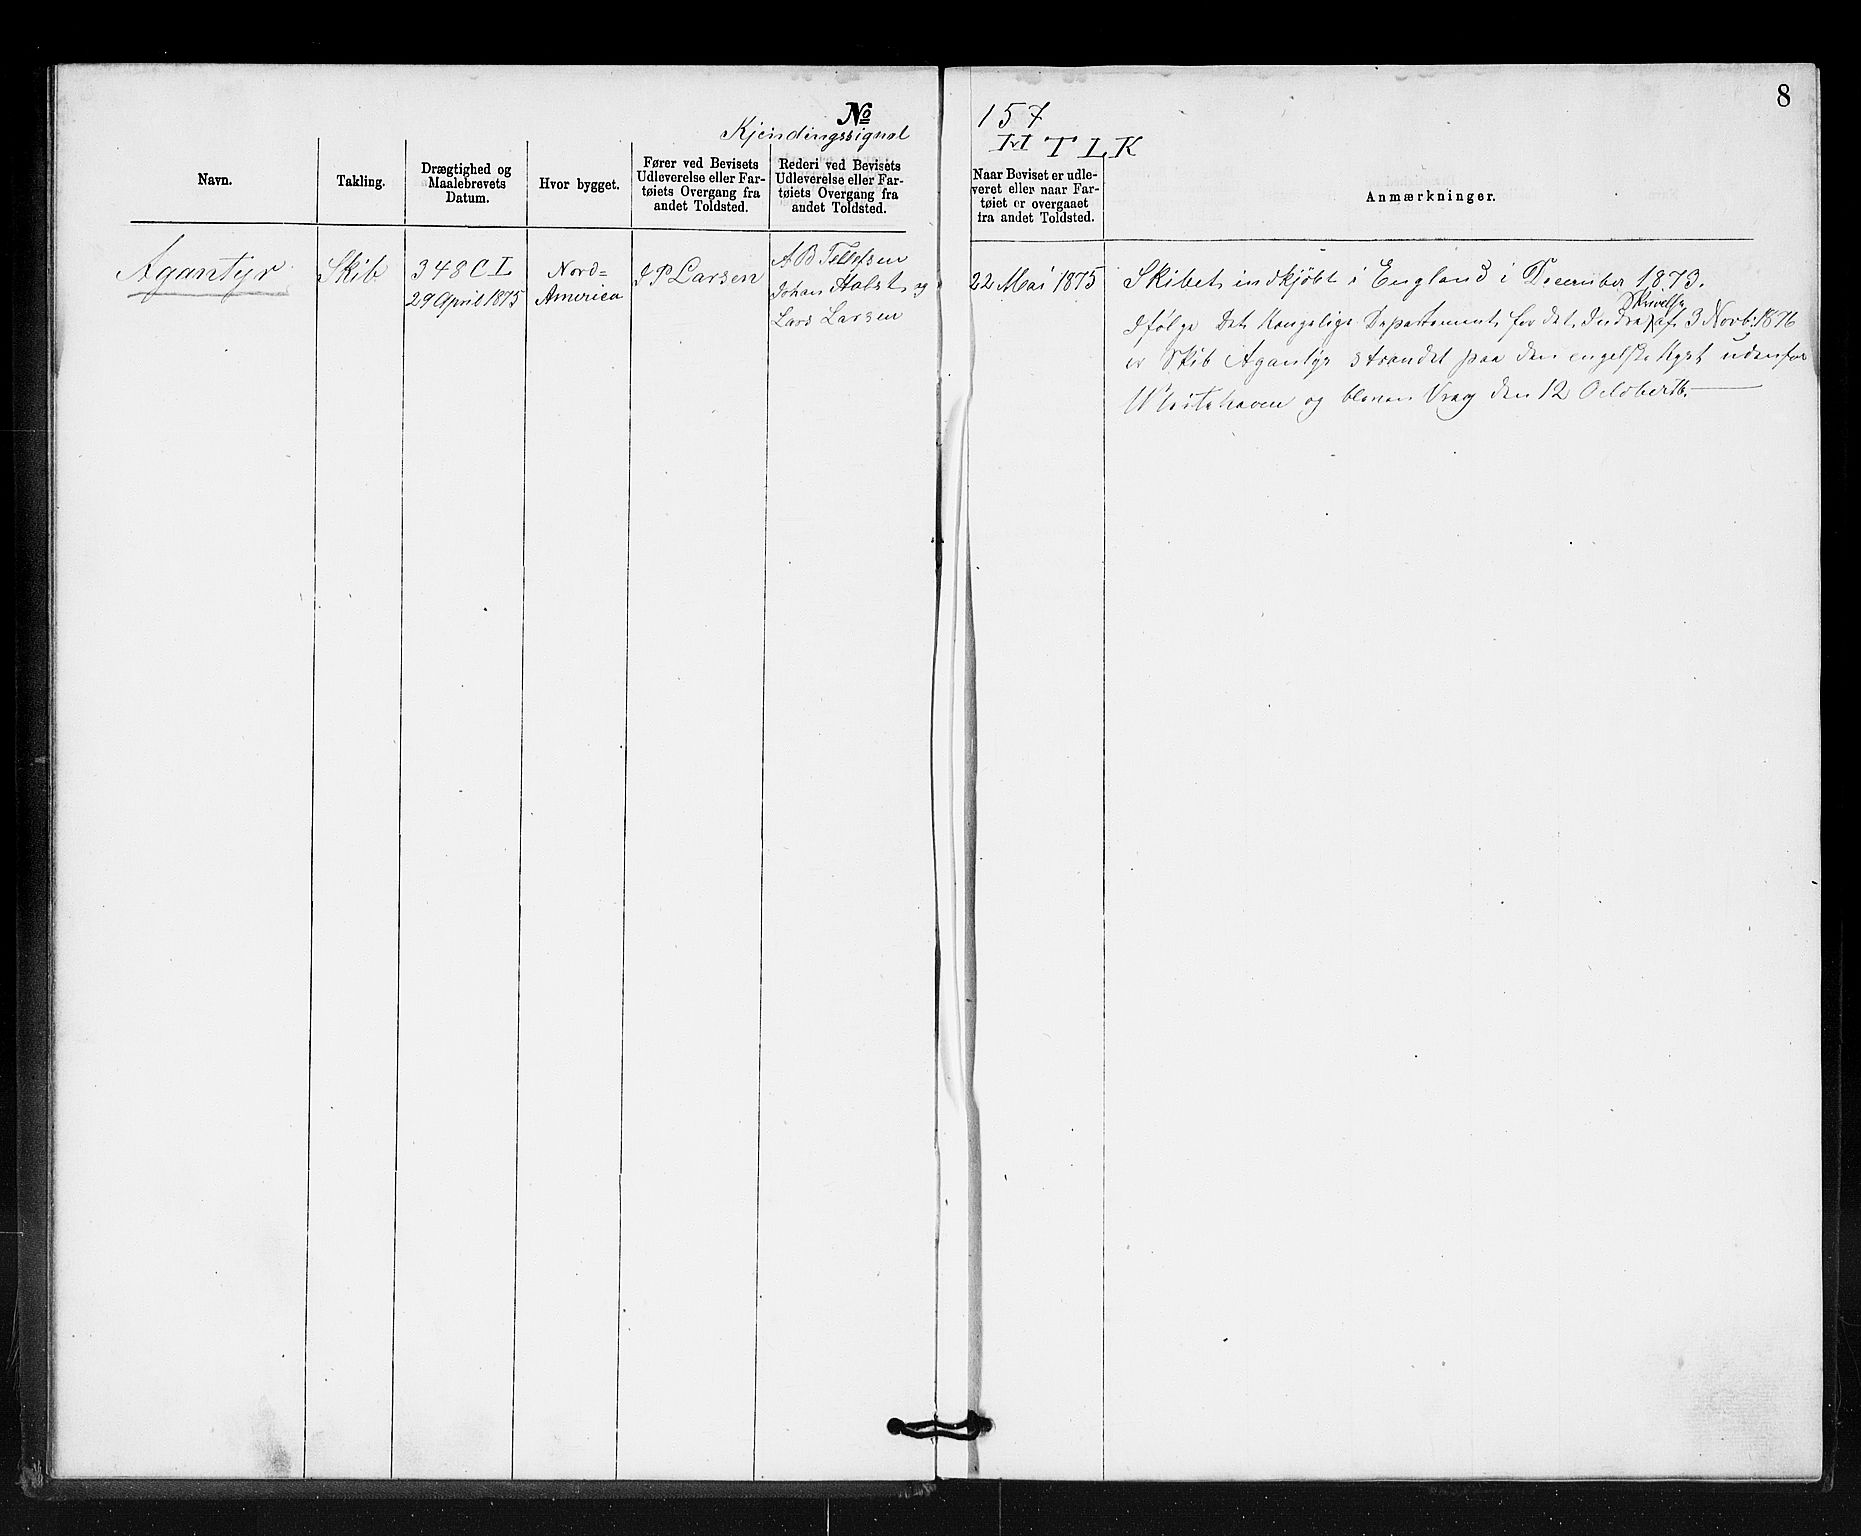 8
No 157
Kjendingssignal H T L K
Navn.
Takling.
Drægtighed og
Maalebrevets
Datum.
Hvor bygget.
Fører ved Bevisets
Udleverelse eller Far-
tøiets Overgang fra
andet Toldsted.
Rederi ved Bevisets
Udleverelse eller Far-
tøiets Overgang fra
andet Toldsted.
Naar Beviset er udle-
veret eller naar Far-
tøiet er overgaaet
fra andet Toldsted.
Anmærkninger.
Agantyr
Skib
348 C L
29 April 1875
Nord=
America
J P Larsen
A B Tellefsen
Johan Holst og
Lars Larsen
22 Mai 1875
Skibet indkjøbt i England i December 1873.
Ifølge Det Kongelige Departement for det Indre Skrivelse af 3 Novb: 1876
er Skib Agantyr strandet paa den engelske Kyst udenfor
og bleven Vrag den 12 October 76.